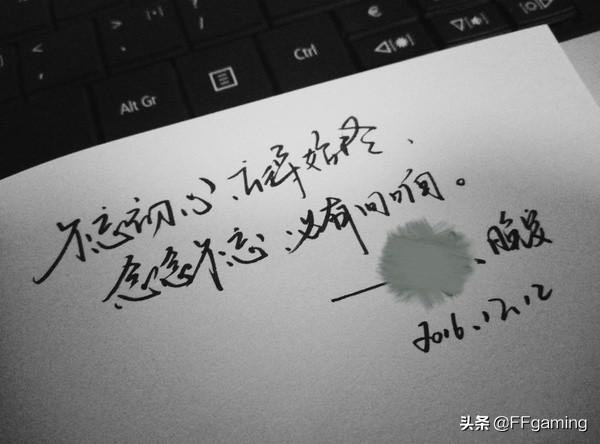 < , Alt Gr Ctrl €
不忘初心、方得始终、
念念不忘、必有回响。
——
2016.12.12
头条 @FFgaming